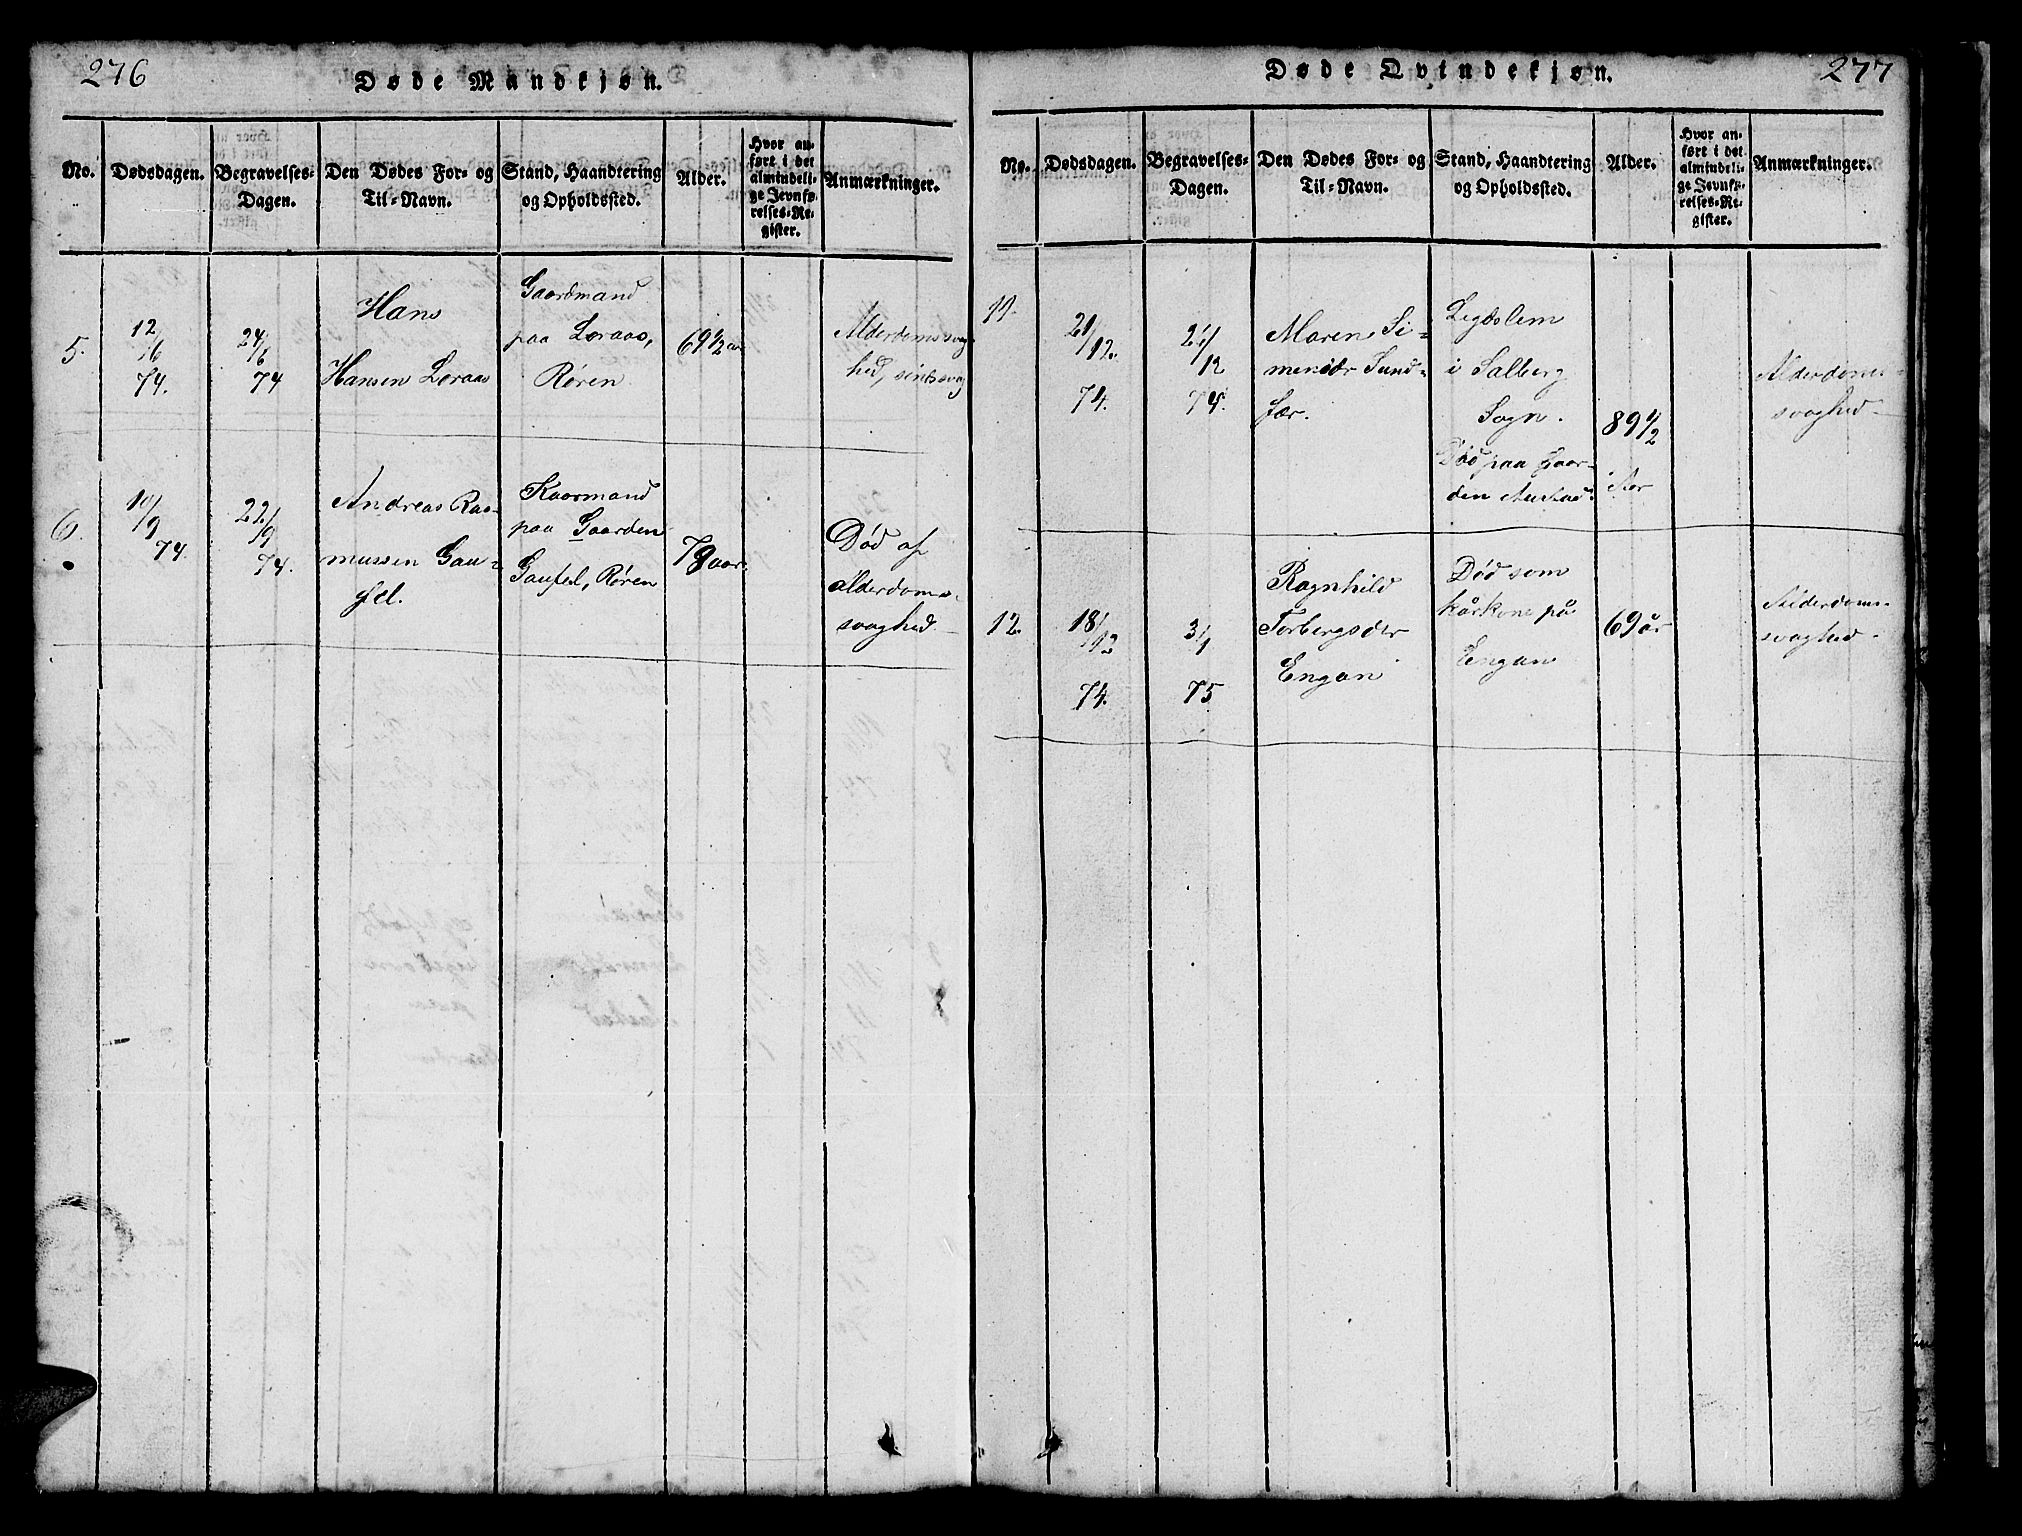 276
Døde Mandkjøn.
No.
Dødsdagen.
Begravelses-
Dagen.
Den Dødes For- og
Til-Navn.
Stand, Haandtering
og Opholdssted.
Alder.
Hvor an-
ført i det
almindeli-
ge Jevnfø-
relses-Re-
gister.
Anmærkninger.
5.
12/6
74.
24/6
74
Hans
Hansen Løraas
Gaardmand
paa Løraas,
Røren
69 1/2
Alderdomssvag-
hed, sindssvag
6.
10/9
74.
22/9
74.
Andreas Ras-
mussen Gau-
Kaarmand
paa Gaarden
Røren
aar
Død af
alderdoms-
svaghed
277
Døde Qvindekjøn.
No.
Dødsdagen.
Begravelses-
Dagen.
Den Dødes For- og
Til-Navn.
Stand, Haandtering
og Opholdssted.
Alder.
Hvor an-
ført i det
almindeli-
ge Jevnfø-
relses-Re-
gister.
Anmærkninger.
11.
21/12.
74.
/12
74.
Maren Si-
mensdr Sund-
fær.
Legdslem
i Salberg
Sogn.
Død paa Gaar-
den Austad.
89 1/2
Aar
Alderdoms-
svaghed
12.
18/12
74.
3/1
75
Ragnhild
Torbergsder
Engan
Død som
kårkone på
Engan
69 år
Alderdoms-
svaghed